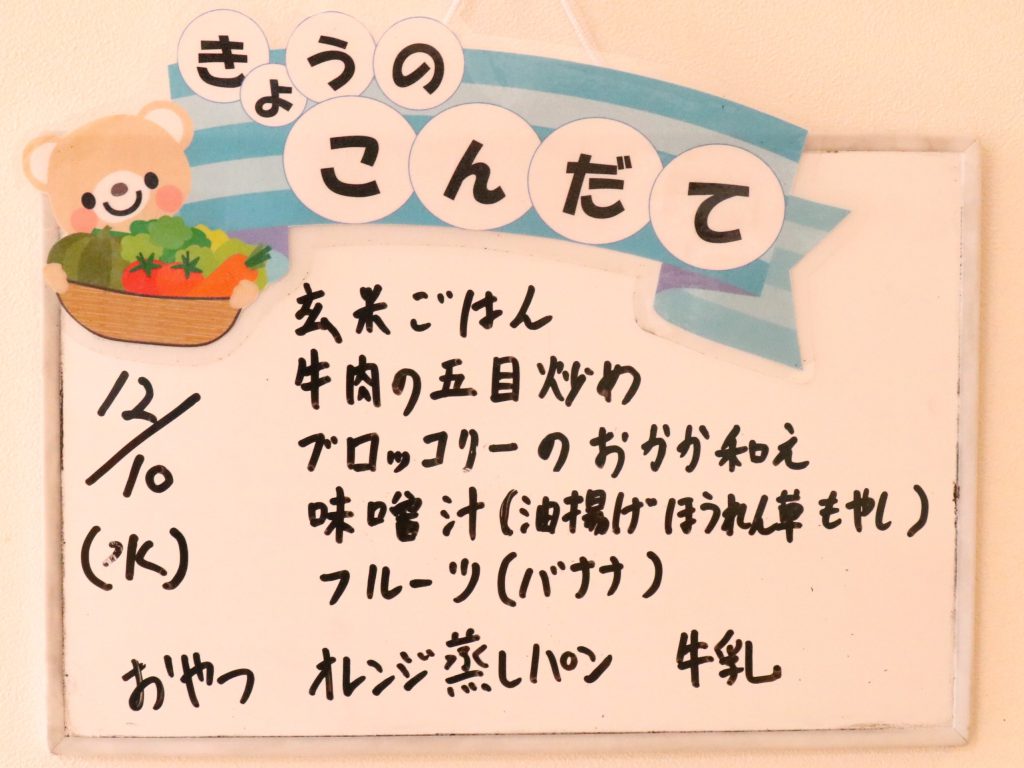 きょうの
こんだて
玄米ごはん
牛肉の五目炒め
ブロッコリーのおかか和え
味噌汁(油揚げほうれん草もやし)
フルーツ(バナナ)
12/10
(水)
おやつ オレンジ蒸しパン 牛乳